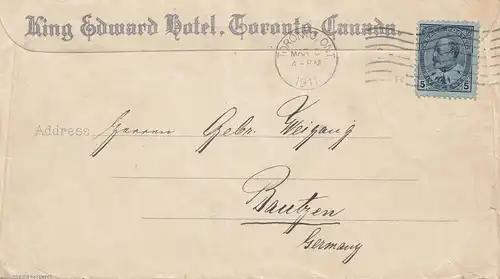 King Edward Hotel, Toronto, Canada.
TORONTO, ONT
MAR
4 - PM
1911
5 5
Address Herren Gebr. Weigang
Bautzen
Germany